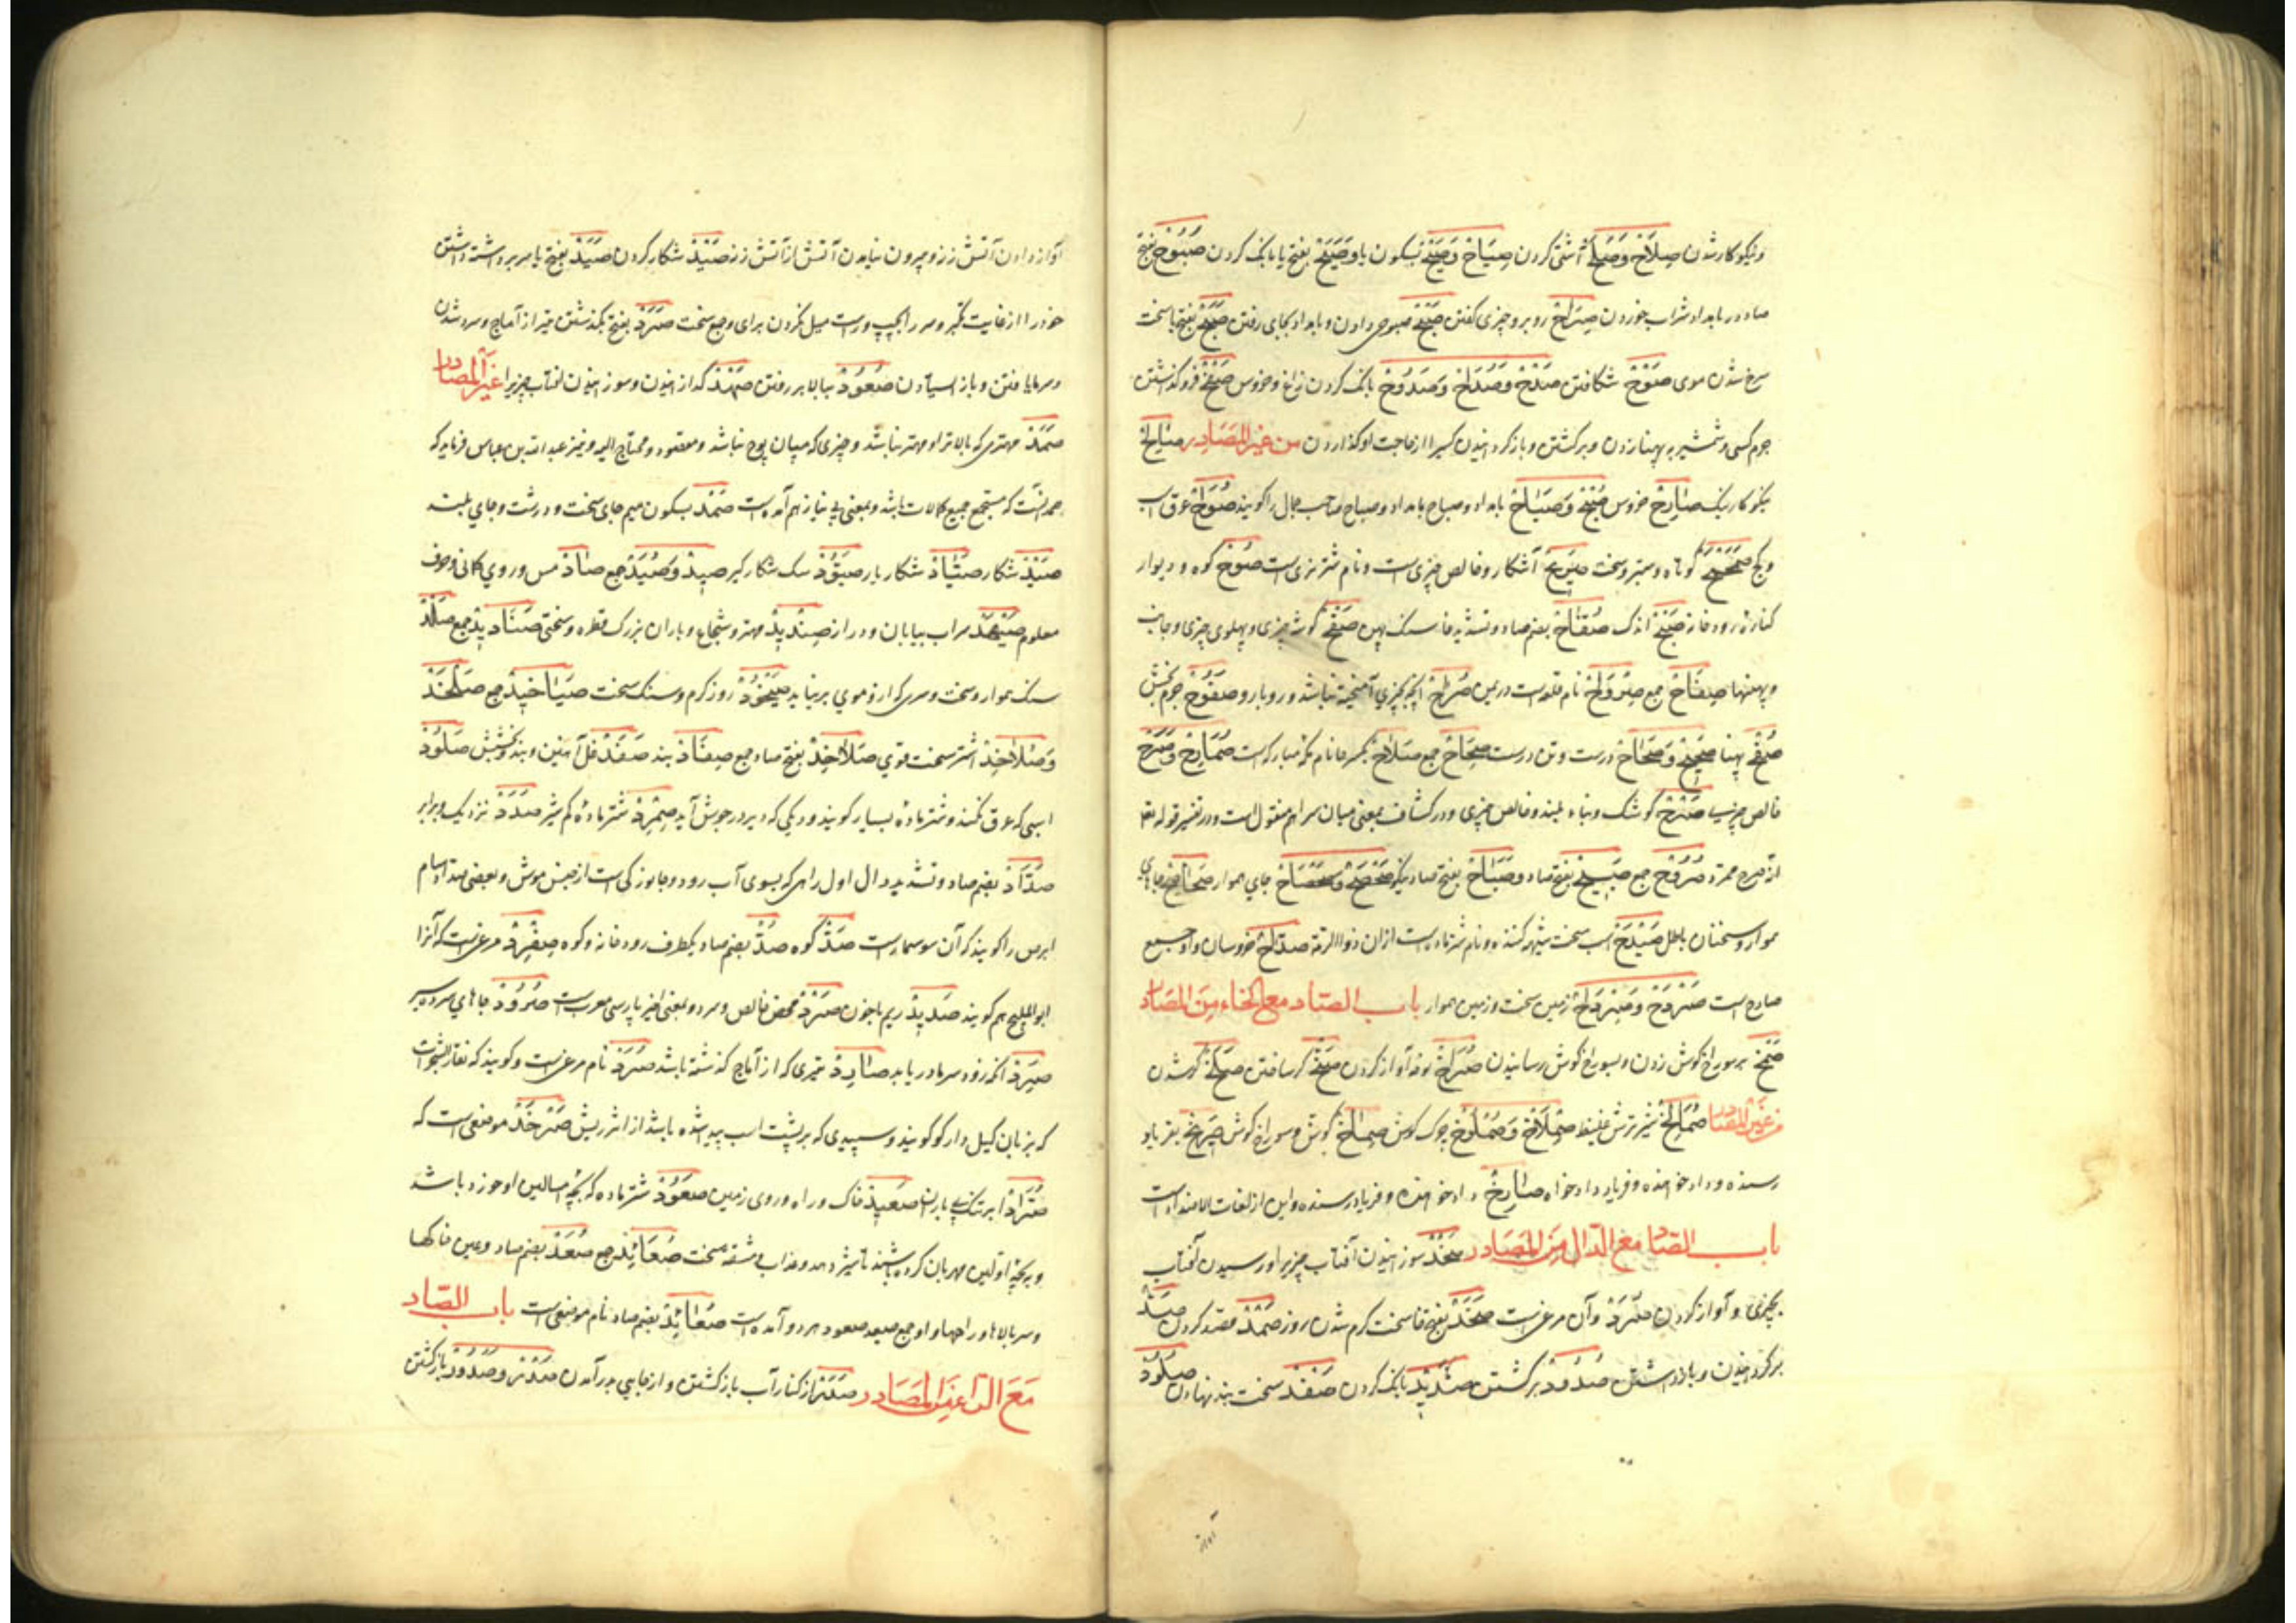 ونیکوکار شدن صِلَاحْ وَصُلْحْ آشتی کردن صِیَاحْ وَصَیْحْ بسکون یا وَصَیَحْ بفتح یا بانک کردن صَبُوحْ بفتح
صاد در بامداد شراب خوردن صِرَاحْ روبرو چیزی گفتن صَبْحْ صبوحی دادن و بامداد بجای رفتن صَبَحْ بفتح با سخت
سرخ شدن موی صَوْحْ شکافتن صَدْحْ وَصُدَاحْ وَصَدُوحْ بانک کردن زاغ و خروس صَفْحْ فرو گذاشتن
جرم کسی و شمشیر به پهنا زدن و برگشتن و باز گردانیدن کسی را از حاجت او گذاردن من غیر المَصَادِر صَالِحْ
نیکوکار نیک صَادِحْ خروس صُبْحْ وَصَبَاحْ بامداد و صباح بامداد و صباح صاحب جمال را گویند صُوَاحْ عرق اسب
و گچ صَمَحْمَحْ کوتاه و ستبر و سخت آشکار و خالص چیزی است و نام شتر نری است صُوحْ کوه و دیوار
کنارهٔ رودخانه صُفَّاحْ بضم صاد و تشدید فا سنک پهن صَفْحْ گوشه چیزی و پهلوی چیزی و جانب
و پهنها صِفَاحْ جمع صِرْوَاحْ نام قلعه است در یمن صُرَاحْ آنچه بچیزی آمیخته نباشد و روبارو صَفُوحْ جرم بخش
صُفْحْ پهنا صَحِیحْ وَصَحَاحْ درست و تن درست صِحَاحْ جمع صَلَاحْ بکسر حا نام مکه مبارکه است صُمَادِحْ وَصَرَحْ
خالص هر چیز صَرْحْ کوشک و بناء بلند و خالص چیزی و در کشاف بمعنی میان سرای منقول است و در تفسیر قوله تع
صرح ممرد صُرُوحْ جمع صَبِیحْ بفتح صاد وَصَبَاحْ بفتح صاد نیکو صَحْصَحْ وَصَحْصَاحْ جای هموار صَحَاصِحْ جاهای
هموار و سخنان باطل صَیْدَحْ اسب سخت شیهه کننده و نام شتر ماده است از ان ذوالرمة صدّاحْ خروسان و او جمع
صادح است صَرْدَحْ وَصِرْدَاحْ زمین سخت و زمین هموار باب الصّاد مع الخاء مِنَ المَصَادِر
صَمْخْ بر سوراخ گوش زدن و بسوراخ گوش رسانیدن صُرَاخْ نوحه آواز کردن صَخّْ کر ساختن صَلَخْ کر شدن
من غیر المصادر صُمَالِخْ شیر ترش غلیظ صِمْلَاخْ وَصُمْلُوخْ چرک گوش صِمَاخْ گوش و سوراخ گوش صَرِیخْ بفریاد
رسنده و داد خواهنده و فریاد و داد خواه صَارِخْ داد خواهنده و فریاد رسنده و این از لغات الاضداد است
باب الصّاد مع الدّال مِنَ المَصَادِر صَخْدْ سوزانیدن آفتاب چیزیرا و رسیدن آفتاب
بچیزی و آواز کردن صُرَدْ و آن مرغی است صَخَدْ بفتح خا سخت گرم شدن روز صَمْدْ قصد کردن صَدّْ
بر گردانیدن و باز داشتن صُدُودْ برگشتن صَدِیدْ بانک کردن صَفْدْ سخت بند نهادن صُلُودْ
آواز
آواز دادن آتش زنه و بیرون نیامدن آتش از آتش زنه صَیْدْ شکار کردن صَیَدْ بفتح یا سر بر داشته داشتن
خود را از غایت تکبر و سر را بچپ و راست میل نکردن برای وجع سخت صَرَدْ بفتح بگذشتن تیر از آماج و سرد شدن
و سرما یافتن و باز ایستادن صُعُودْ ببالا بر رفتن صَهْدْ گدازانیدن و سوزانیدن آفتاب چیزیرا غیر المصادر
صَمَدْ مهتری که بالاتر او مهتر نباشد و چیزی که میان پوچ نباشد و مقصود و محتاج الیه و نیز عبد الله بن عباس فرماید که
صمد آنست که مستجمع جمیع کمالات باشد و بمعنی بی نیاز هم آمده است صَمْدْ بسکون میم جای سخت و درشت و جای بلند
صَیْدْ شکار صَیَّادْ شکار یار صَیُودْ سک شکار گیر صِیدْ وَصُیُدْ جمع صَادْ مس و روی کانی و حرف
معلوم صَیْهَدْ سراب بیابان و دراز صِنْدِیدْ مهتر و شجاع و باران بزرک قطره و سختی صَنَادِیدْ جمع صَلْدْ
سنک هموار و سخت و سری که از و موی بر نیاید صَیْخُودْ روز گرم و سنک سخت صَیَاخِیدْ جمع صَلَخْدْ
وَصُلَاخِدْ اشتر سخت قوی صَلَاخِدْ بفتح صاد جمع صِفَادْ بند صَفَدْ غل آهنین و بند و بخشش صَلُودْ
اسبی که عرق نکند و شتر مادهٔ بسیار گویند و دیکی که دیر در جوش آید صِمْرِدْ شتر مادهٔ کم شیر صَدَدْ نزدیک و برابر
صُدَّادْ بضم صاد و تشدید دال اول راهی که بسوی آب رود و جانورکی است از جنس موش و بعضی صداد سام
ابرص را گویند که آن سوسمار است صَدّْ کوه صُدّْ بضم صاد یکطرف رودخانه و کوه صِفْرِدْ مرغی است که آنرا
ابو الملیح هم گویند صَدِیدْ ریم با خون صَرْدْ محض خالص و سرد و بمعنی اخیر پارسی معرب است صُرُودْ جاهای سرد سیر
صَرِدْ آنکه زود سرما دریابد صَارِدْ تیری که از آماج گذشته باشد صُرَدْ نام مرغی است و گویند که نقار الشجر است
که بزبان گیل دار کو گویند و سپیدی که بر پشت اسب پدید شده باشد از اثر ریش صَرْخَدْ موضعی است که
صُرَّادْ ابر تنک بی باران صَعِیدْ خاک و راه و روی زمین صَعُودْ شتر ماده که بچه
و بر بچه اولین مهربان کرده باشند تا شیر دهد و عذاب با مشقه سخت صَعَائِدْ جمع صُعُدْ بضم صاد و عین خاکها
و سر بالاها و راهها و او جمع صعید صعود هر دو آمده است صُعَائِدْ بضم صاد نام موضعی است باب الصّاد
مَعَ الرّا غیر المَصَادِر صَدَرْ از کنار آب باز گشتن و از جایی بدر آمدن صَدْرْ وصُدُورْ باز گشتن